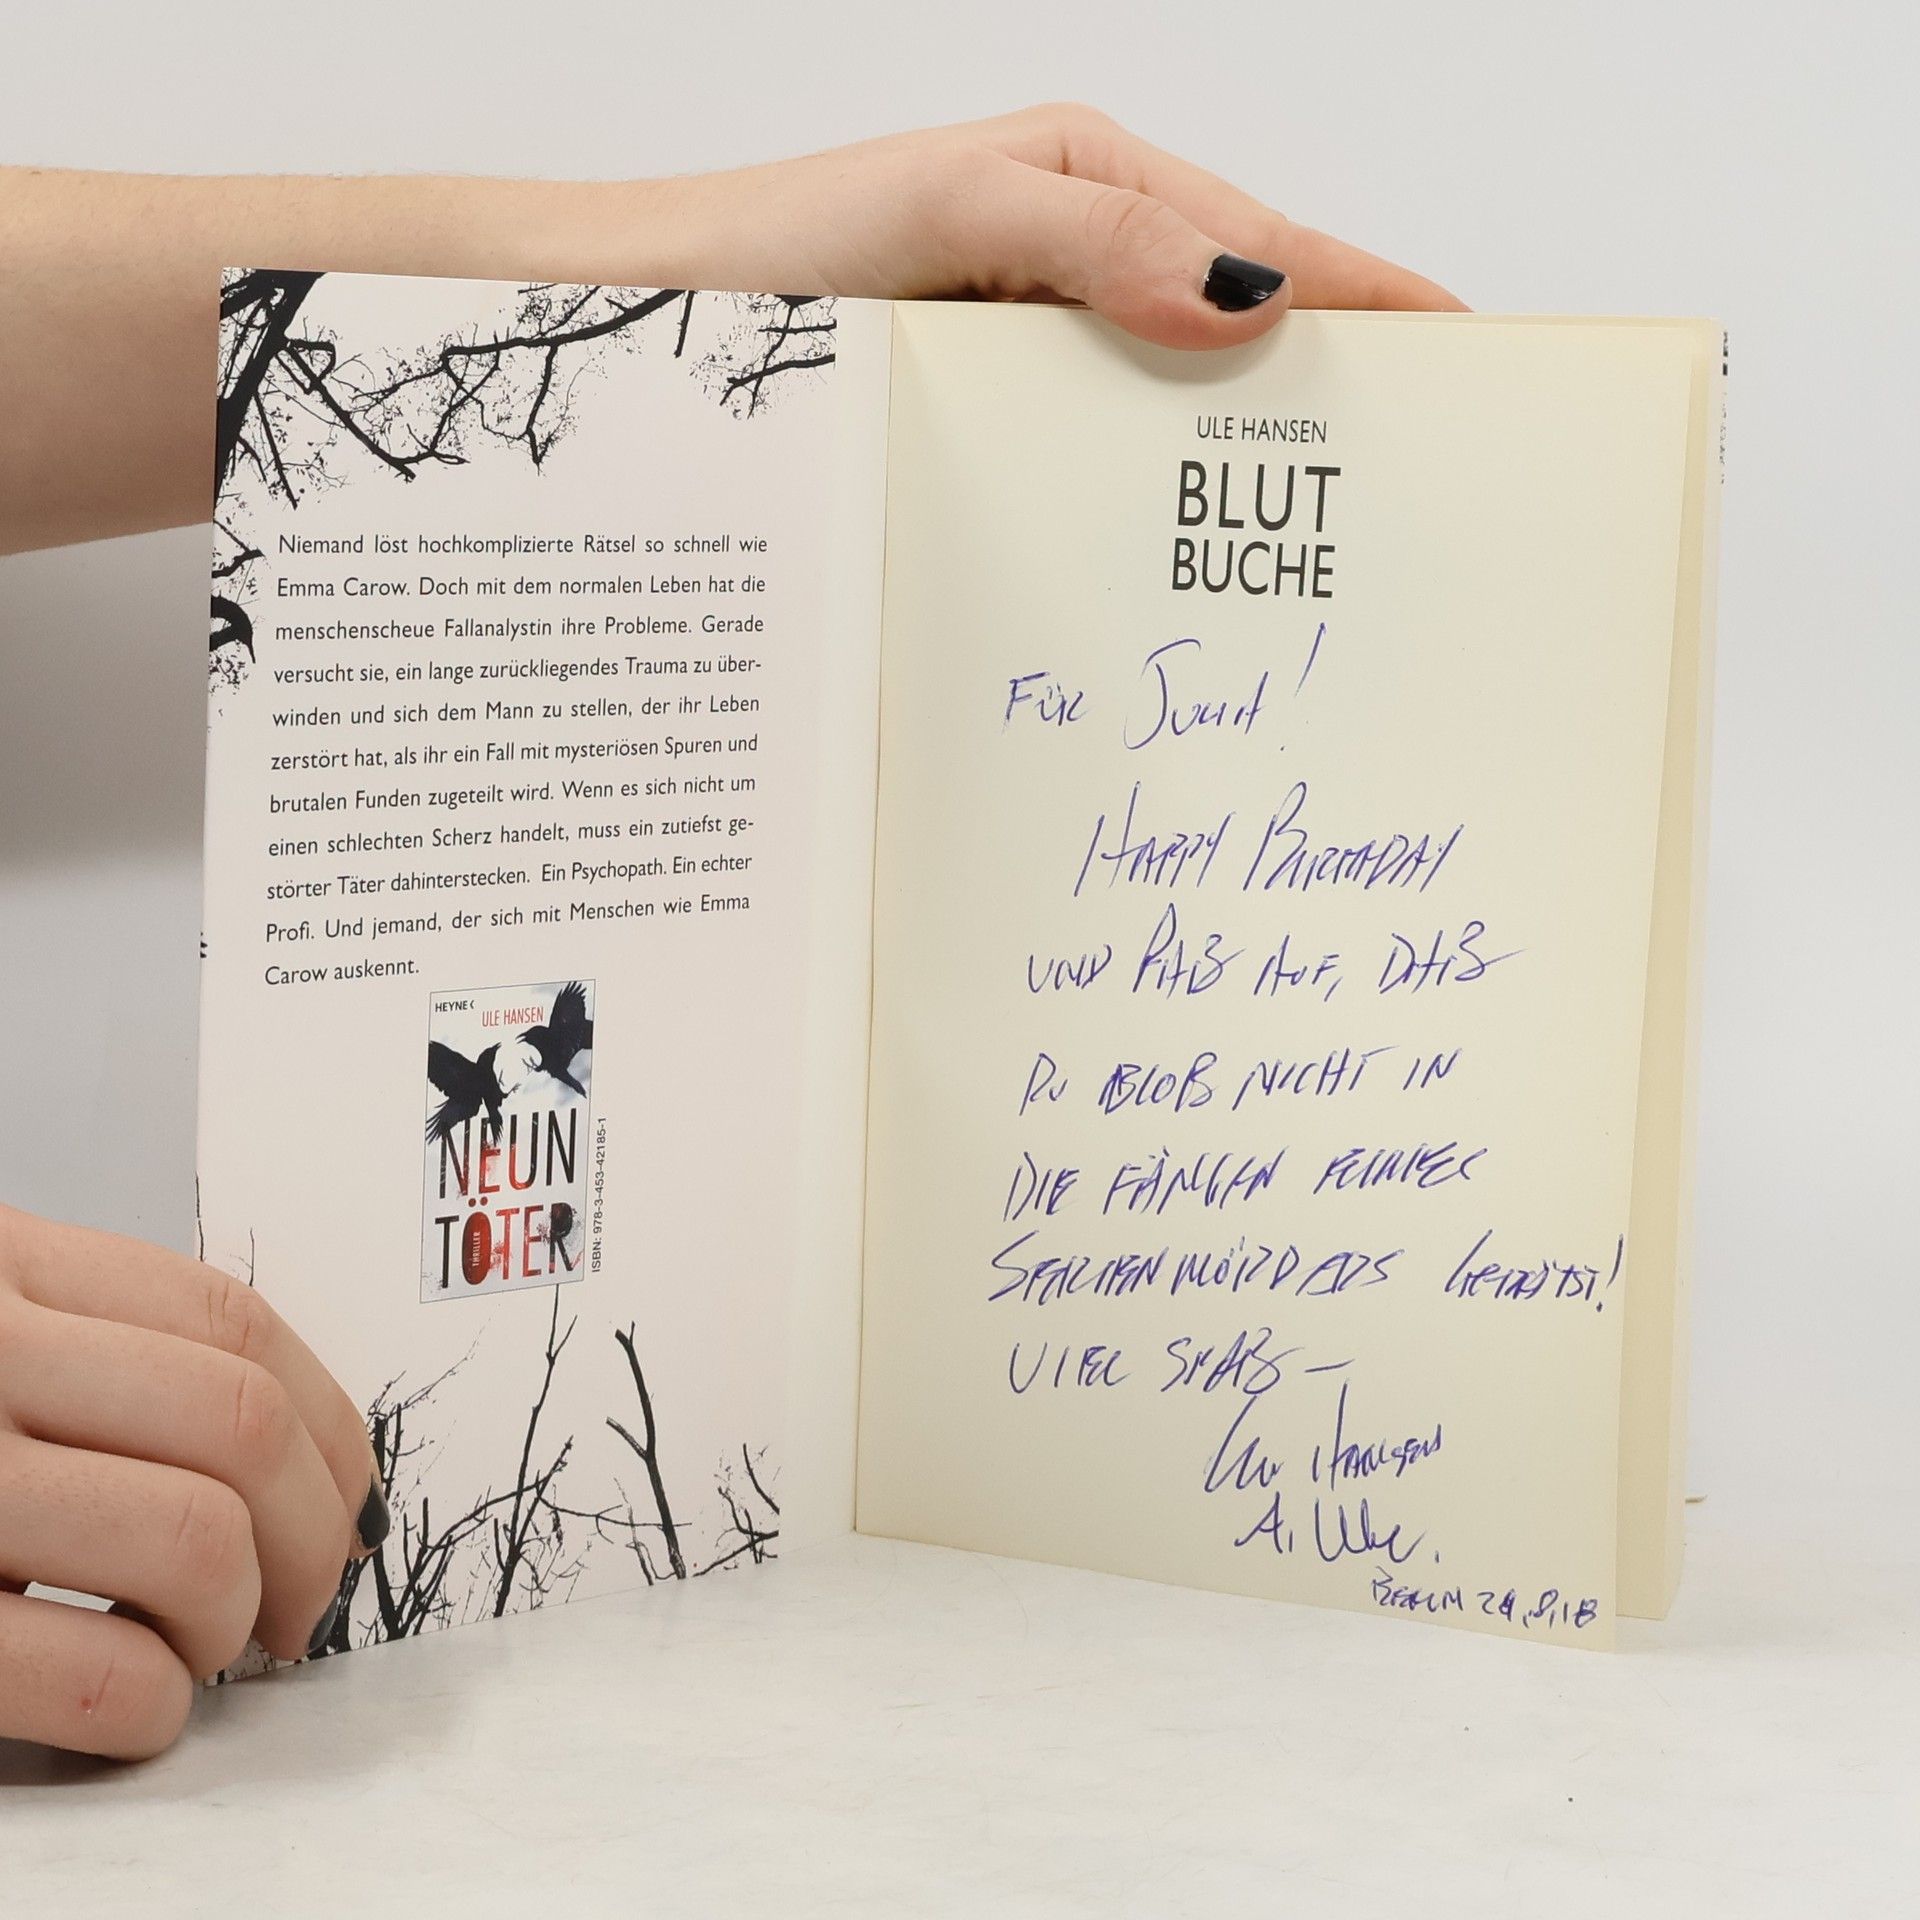 Niemand löst hochkomplizierte Rätsel so schnell wie
Emma Carow. Doch mit dem normalen Leben hat die
menschenscheue Fallanalystin ihre Probleme. Gerade
versucht sie, ein lange zurückliegendes Trauma zu über-
winden und sich dem Mann zu stellen, der ihr Leben
zerstört hat, als ihr ein Fall mit mysteriösen Spuren und
brutalen Funden zugeteilt wird. Wenn es sich nicht um
einen schlechten Scherz handelt, muss ein zutiefst ge-
störter Täter dahinterstecken. Ein Psychopath. Ein echter
Profi. Und jemand, der sich mit Menschen wie Emma
Carow auskennt.
HEYNE <
ULE HANSEN
NEUN
TÖTER
THRILLER
ISBN: 978-3-453-42185-1
ULE HANSEN
BLUT
BUCHE
FÜR !
HAPPY BIRTHDAY
UND PAß AUF, DAß
DU BLOß NICHT IN
DIE FÄNGEN EINES
SERIENMÖRDERS GERÄTST!
VIEL SPAß –
HANSEN
A.
BERLIN 8.18